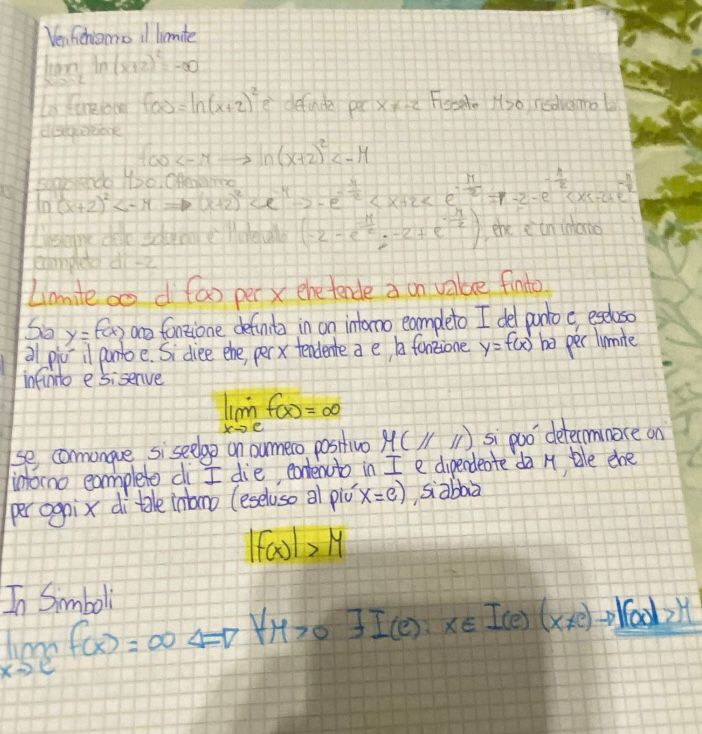 Verifichiamo il limite
lim ln(x+2)² = -∞
x→-2
La funzione f(x) = ln(x+2)² è definita per x ≠ -2 Fissato M>0, risolviamo la
disequazione
f(x) < -M → ln(x+2)² < -M
supponendo M>0. Otteniamo
ln(x+2)² < -M → (x+2)² < e^-M → -e^-M/2 < x+2 < e^-M/2 → -2-e^-M/2 < x < -2+e^-M/2
L'insieme delle soluzioni è l'intervallo (-2-e^-M/2 ; -2+e^-M/2), che è un intorno
completo di -2
Limite ∞ di f(x) per x che tende a un valore finito.
Sia y = f(x) una funzione definita in un intorno completo I del punto c, escluso
al più il punto c. Si dice che, per x tendente a c, la funzione y = f(x) ha per limite
infinito e si scrive
lim f(x) = ∞
x→c
se, comunque si scelga un numero positivo M (// //) si può determinare un
intorno completo di I di c, contenuto in I e dipendente da M, tale che
per ogni x di tale intorno (escluso al più x=c), si abbia
|f(x)| > M
In Simboli
lim f(x) = ∞ ⇔ ∀M>0 ∃I(c): x∈I(c) (x≠c) → |f(x)|>M
x→c